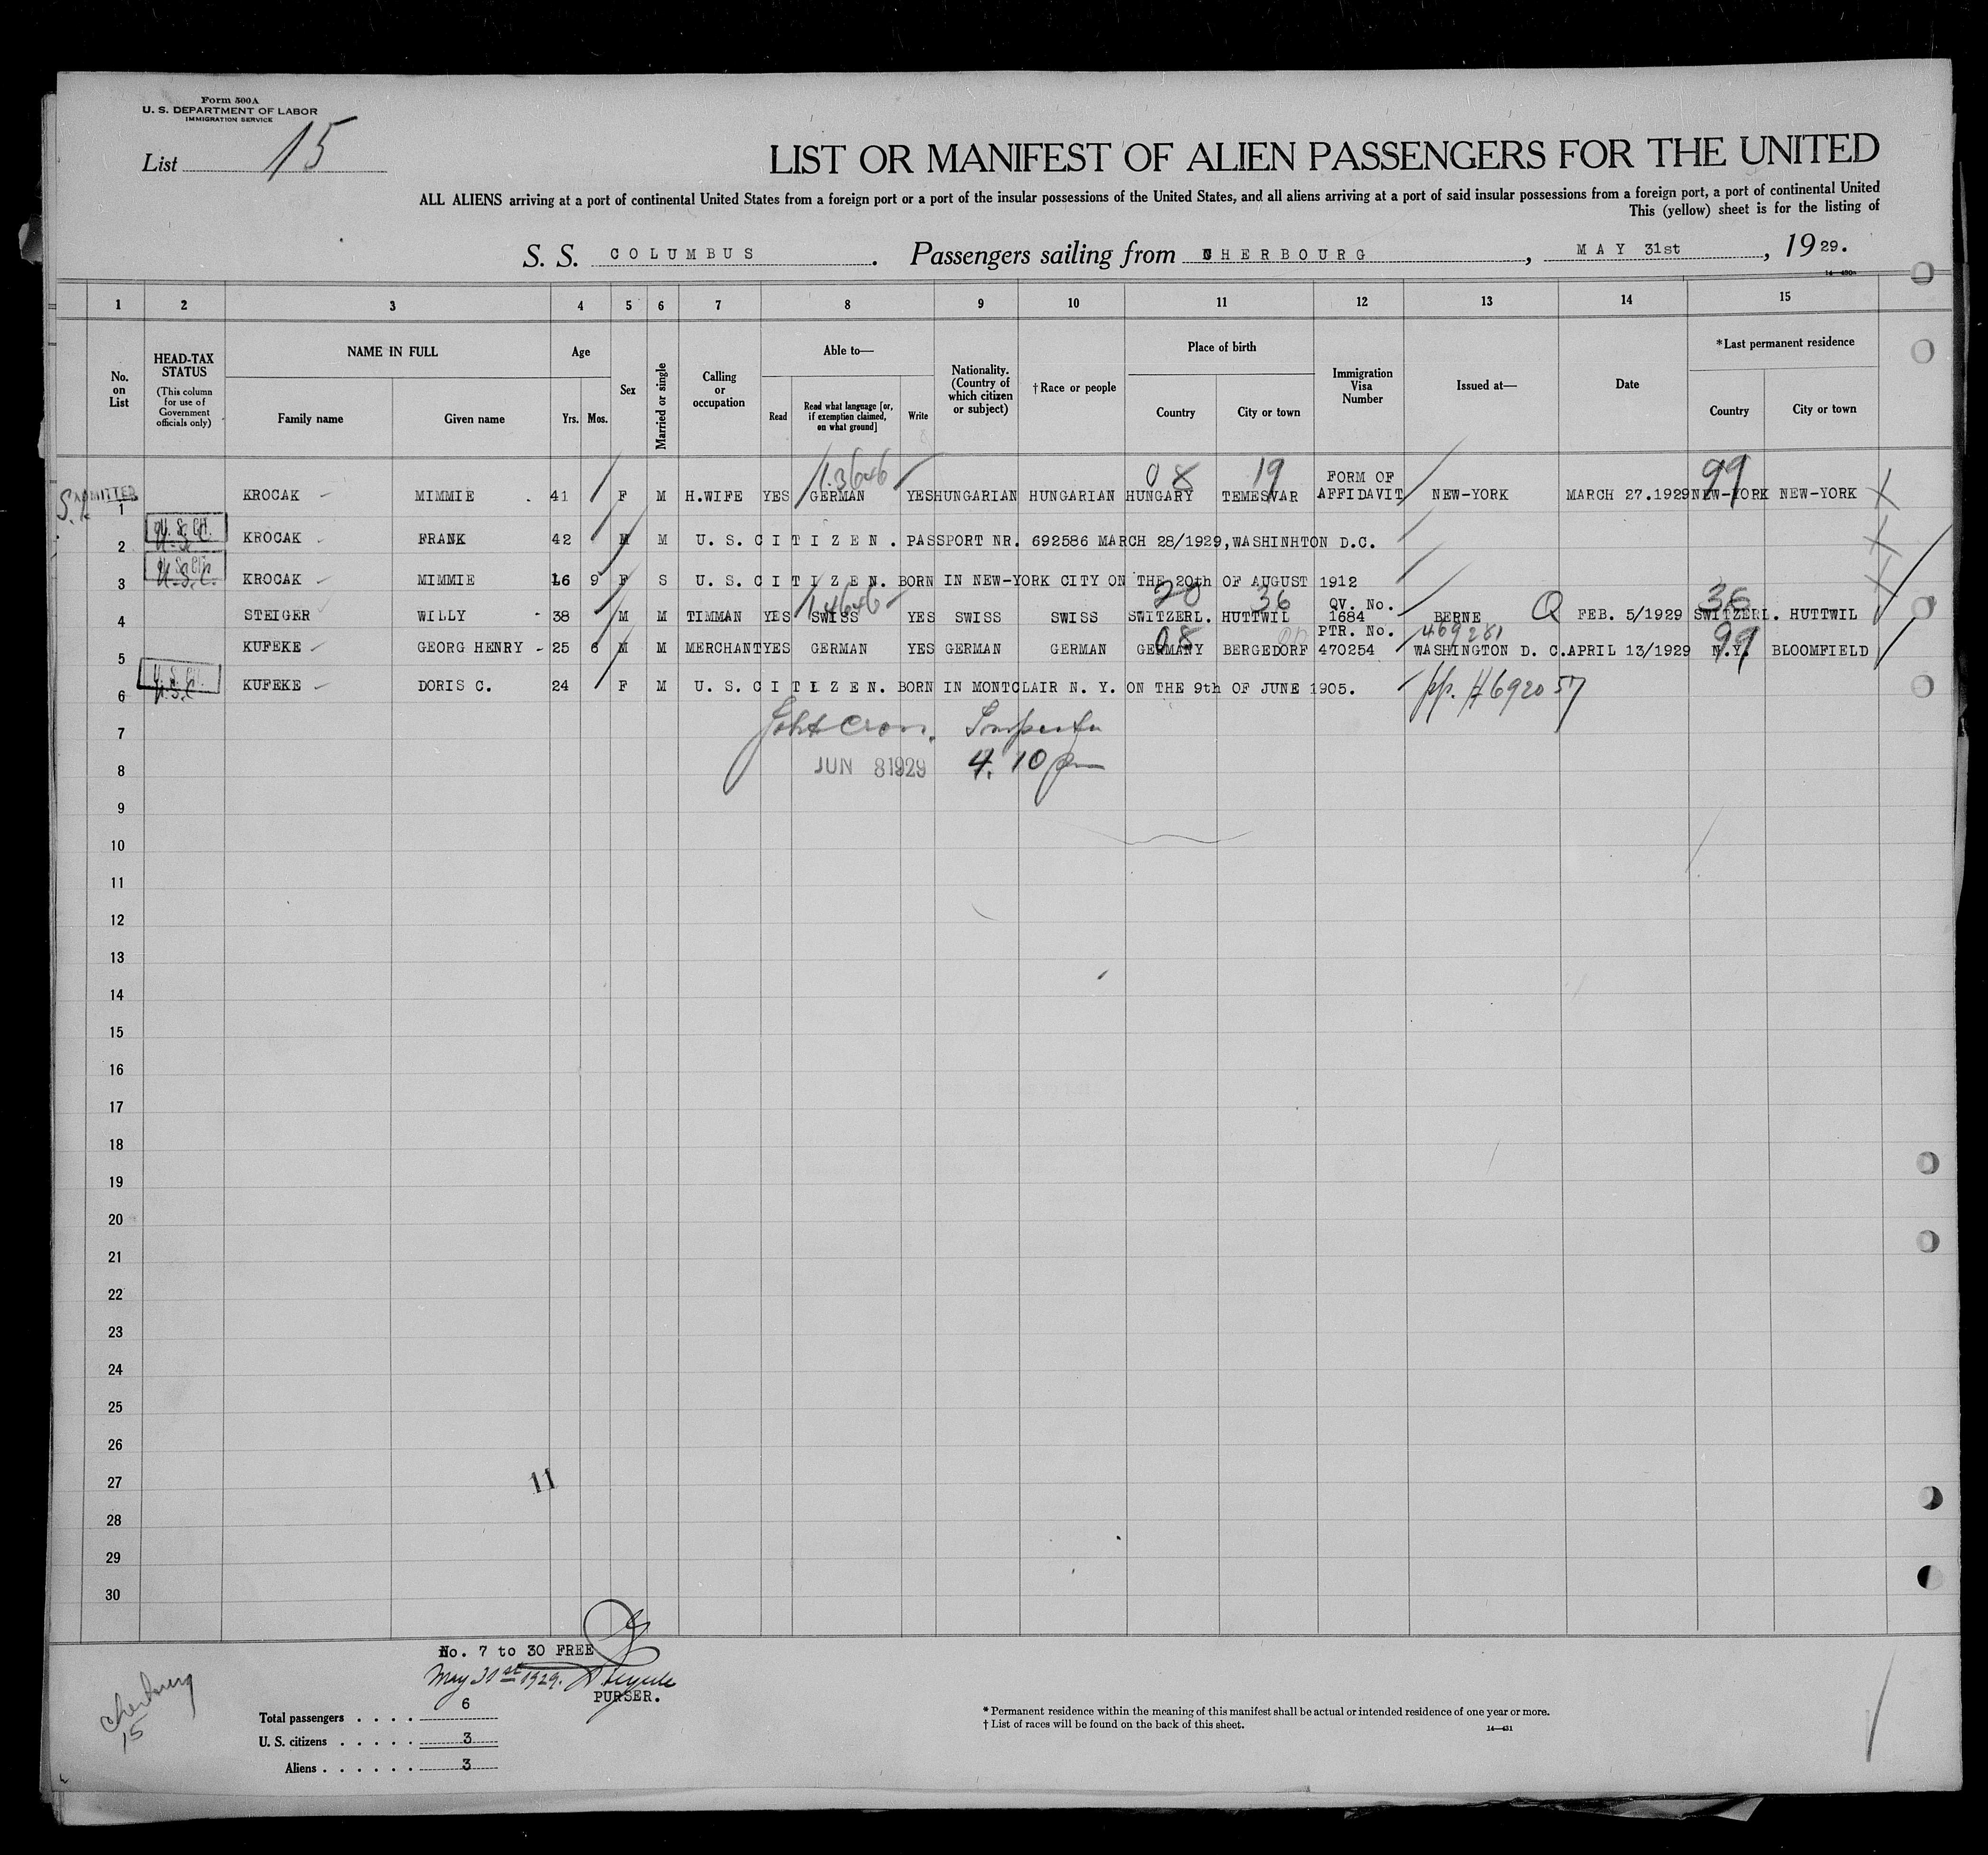 Form 500A
U. S. DEPARTMENT OF LABOR
IMMIGRATION SERVICE
List 15
LIST OR MANIFEST OF ALIEN PASSENGERS FOR THE UNITED
ALL ALIENS arriving at a port of continental United States from a foreign port or a port of the insular possessions of the United States, and all aliens arriving at a port of said insular possessions from a foreign port, a port of continental United
This (yellow) sheet is for the listing of
S. S. COLUMBUS. Passengers sailing from CHERBOURG, MAY 31st, 1929.
1 2 3 4 5 6 7 8 9 10 11 12 13 14 15
No. on List
HEAD-TAX STATUS
(This column for use of Government officials only)
NAME IN FULL
Family name Given name
Age
Yrs. Mos.
Sex
Married or single
Calling or occupation
Able to—
Read Read what language [or, if exemption claimed, on what ground] Write
Nationality. (Country of which citizen or subject)
†Race or people
Place of birth
Country City or town
Immigration Visa Number
Issued at—
Date
*Last permanent residence
Country City or town
13646 08 19 99
ADMITTED
1 KROCAK MIMMIE 41 F M H.WIFE YES GERMAN YES HUNGARIAN HUNGARIAN HUNGARY TEMESVAR FORM OF AFFIDAVIT NEW-YORK MARCH 27.1929 NEW-YORK NEW-YORK
2 U.S.C. KROCAK FRANK 42 M M U. S. CITIZEN. PASSPORT NR. 692586 MARCH 28/1929, WASHINHTON D.C.
3 U.S.C. KROCAK MIMMIE 16 9 F S U. S. CITIZEN. BORN IN NEW-YORK CITY ON THE 20th OF AUGUST 1912
14646 20 36 Q 36
4 STEIGER WILLY 38 M M TIMMAN YES SWISS YES SWISS SWISS SWITZERL. HUTTWIL QV. No. 1684 BERNE FEB. 5/1929 SWITZERL. HUTTWIL
08 469281 99
5 KUFEKE GEORG HENRY 25 6 M M MERCHANT YES GERMAN YES GERMAN GERMAN GERMANY BERGEDORF PTR. No. 470254 WASHINGTON D. C. APRIL 13/1929 N.Y. BLOOMFIELD
6 U.S.C. KUFEKE DORIS C. 24 F M U. S. CITIZEN. BORN IN MONTCLAIR N. Y. ON THE 9th OF JUNE 1905. pp. #692057
7
8 JUN 8 1929 4.10 pm
9
10
11
12
13
14
15
16
17
18
19
20
21
22
23
24
25
26
27 11
28
29
30
No. 7 to 30 FREE
May 31st 1929.
PURSER.
Cherbourg
15
Total passengers . . . . 6
U. S. citizens . . . . . 3
Aliens . . . . . . 3
* Permanent residence within the meaning of this manifest shall be actual or intended residence of one year or more.
† List of races will be found on the back of this sheet.
14—431